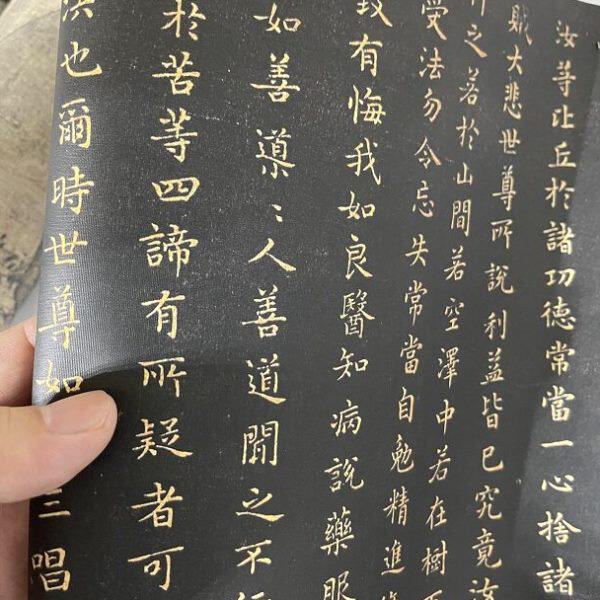 汝等比丘於諸功德常當一心捨諸
賊大悲世尊所說利益皆已究竟汝
之若於山間若空澤中若在樹
受法勿令忘失常當自勉精進修
致有悔我如良醫知病說藥服
如善導〻人善道聞之不行
於苦等四諦有所疑者可
也爾時世尊如三唱